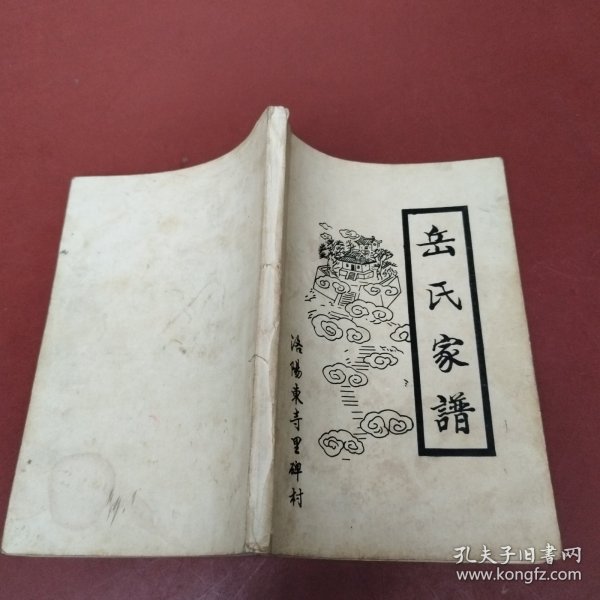 岳氏家譜
洛陽東寺里碑村
孔夫子旧书网
www.kongfz.com